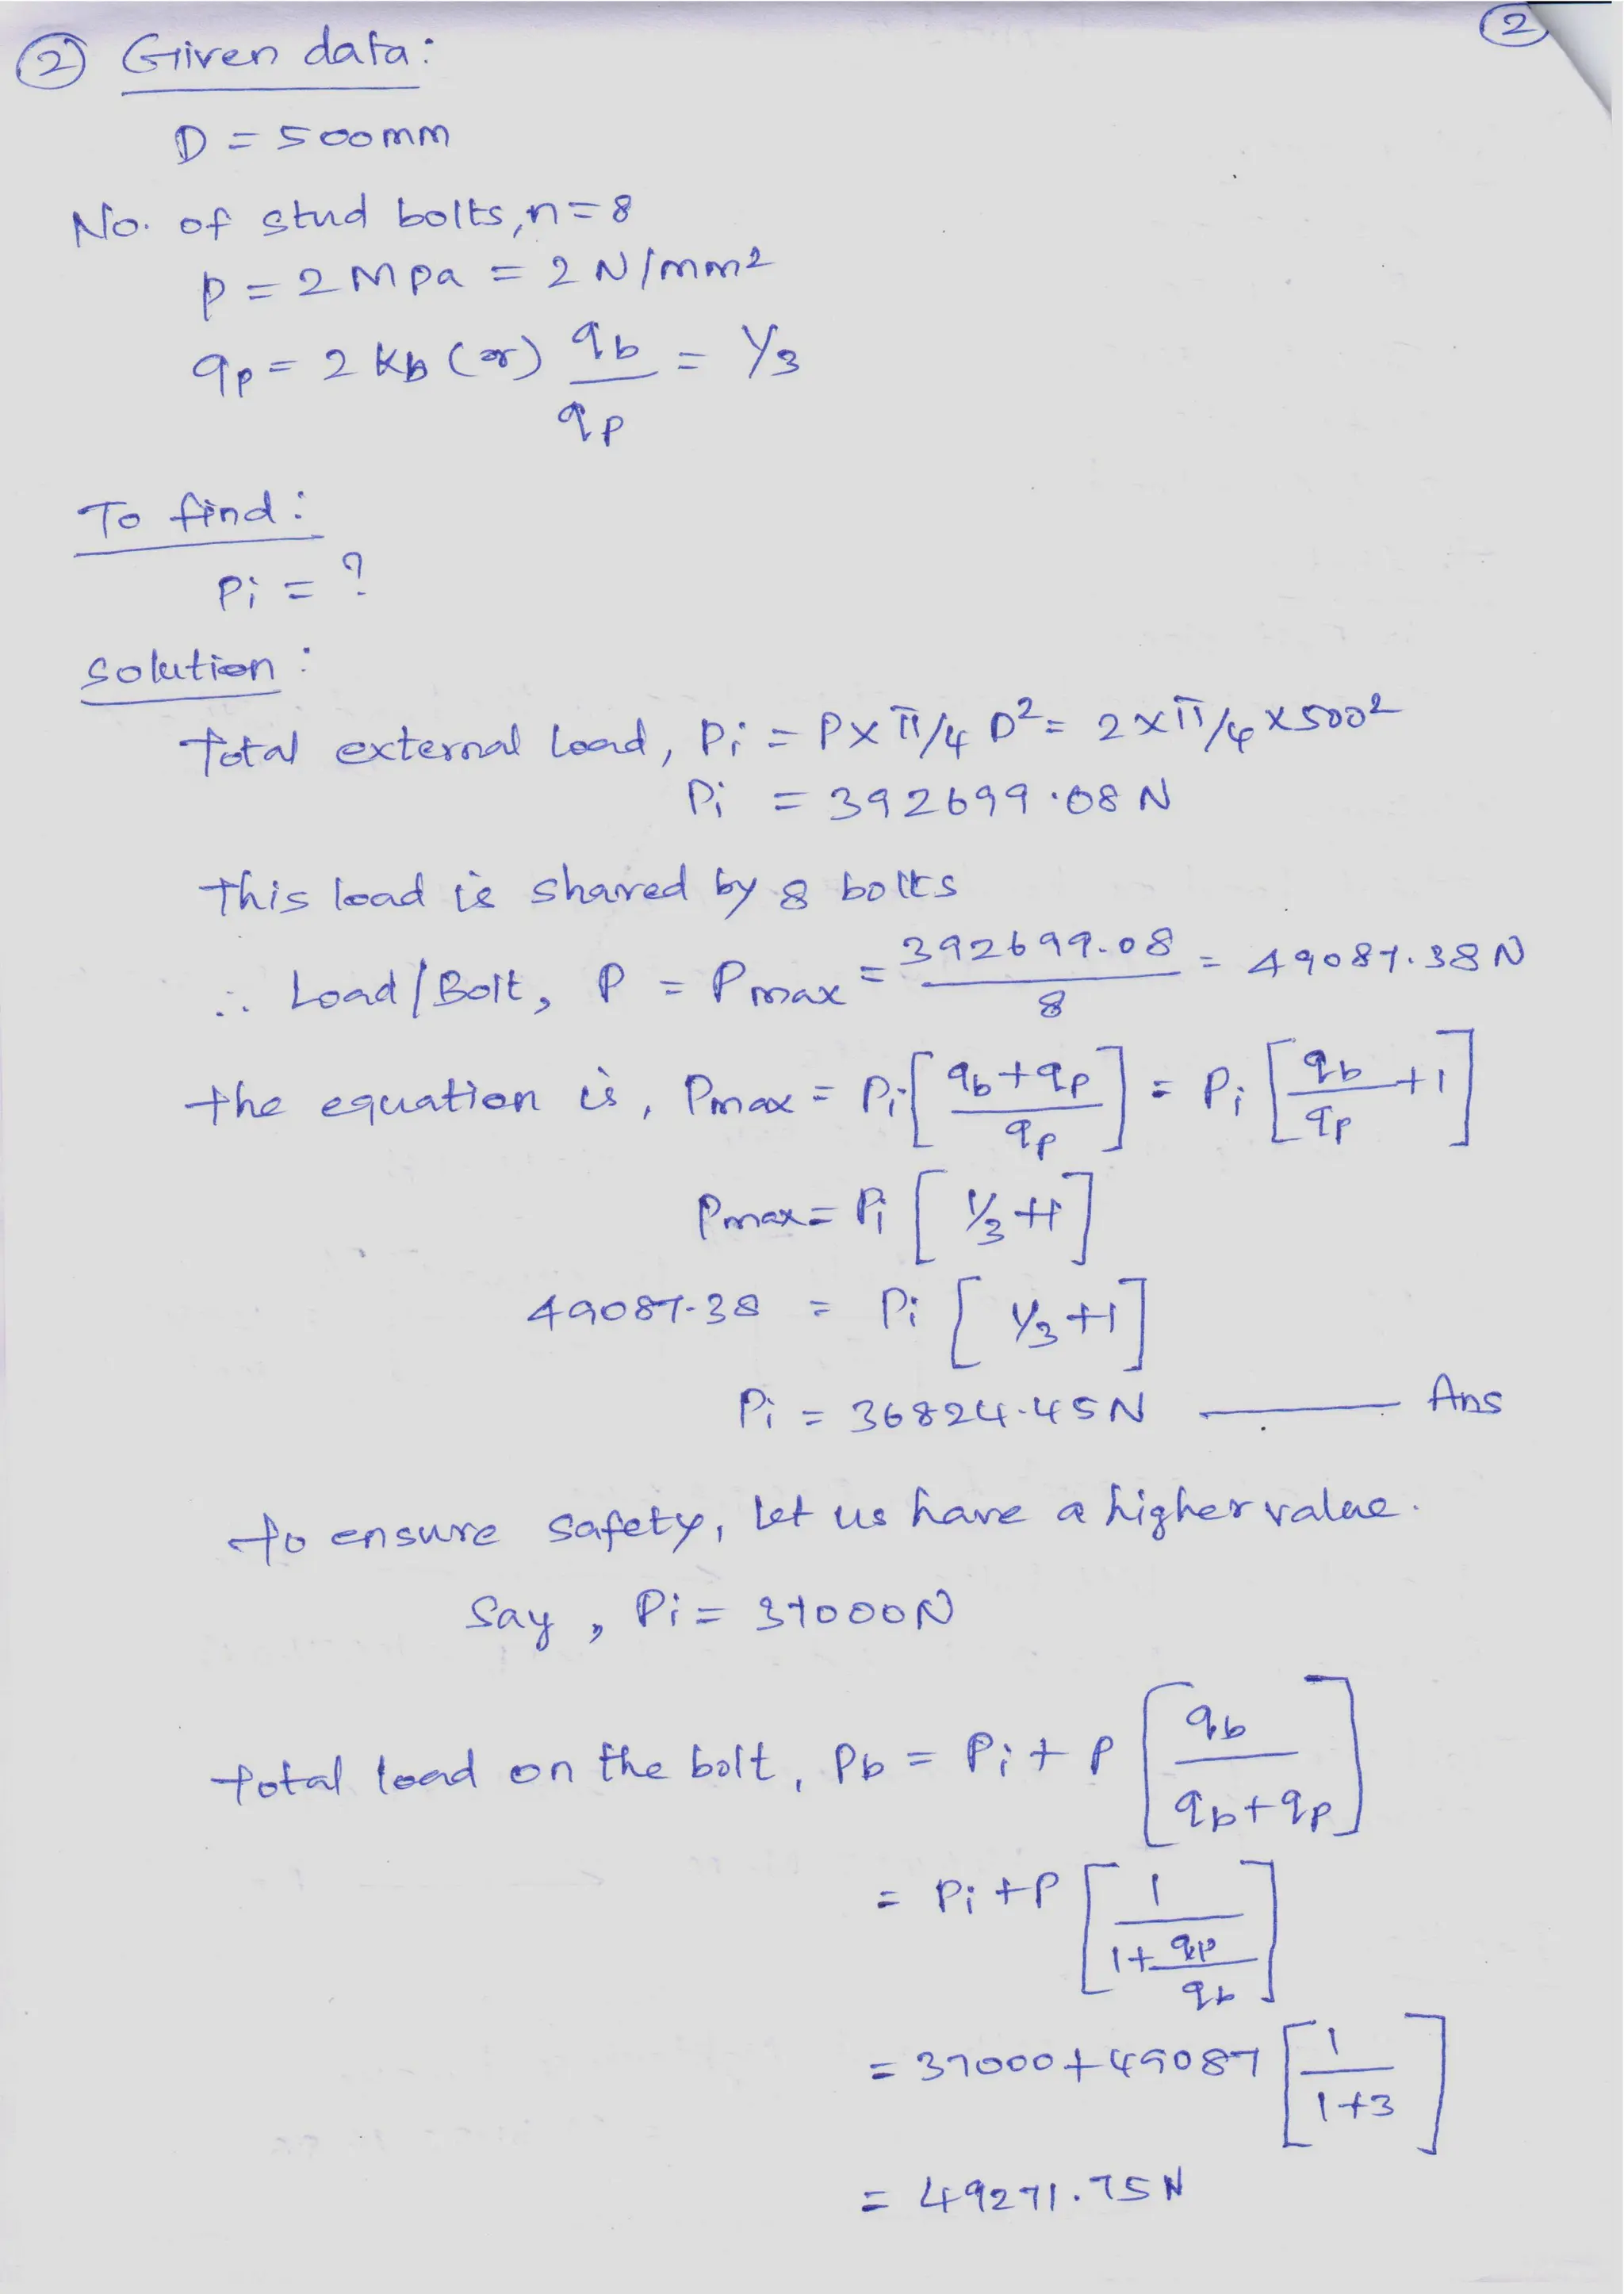 2
② Given data:
D = 500mm
No. of stud bolts, n = 8
p = 2 Mpa = 2 N/mm²
qp = 2 Kb (or) qb/qp = 1/3
To find:
Pi = ?
Solution:
Total external load, Pi = P × π/4 D² = 2 × π/4 × 500²
Pi = 392699.08 N
This load is shared by 8 bolts
∴ Load/Bolt, P = Pmax = 392699.08/8 = 49087.38 N
The equation is, Pmax = Pi [(qb+qp)/qp] = Pi [qb/qp + 1]
Pmax = Pi [1/3 + 1]
49087.38 = Pi [1/3 + 1]
Pi = 36824.45 N —— Ans
To ensure safety, let us have a higher value.
Say, Pi = 37000 N
Total load on the bolt, Pb = Pi + P [qb/(qb+qp)]
= Pi + P [1/(1 + qp/qb)]
= 37000 + 49087 [1/(1+3)]
= 49271.75 N